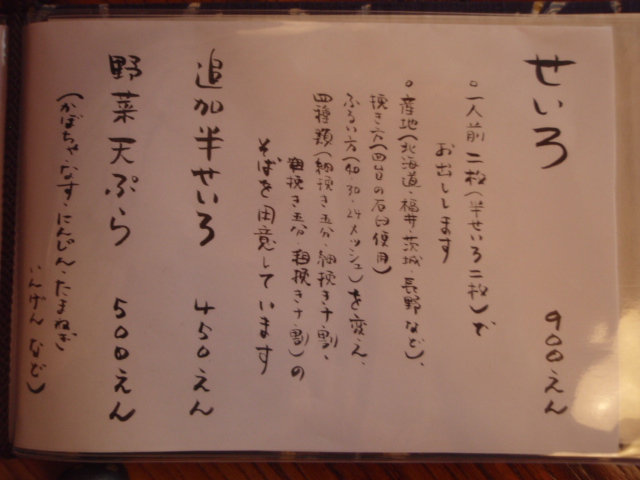 せいろ 900えん
○一人前 二枚(半せいろ二枚)で
お出しします
○産地(北海道・福井・茨城・長野など)、
挽き方(四台の石臼使用)
ふるい方(40・30・24メッシュ)を変え、
四種類(細挽き五分・細挽き十割、
粗挽き五分・粗挽き十割)の
そばを用意しています
追加半せいろ 450えん
野菜天ぷら 500えん
(かぼちゃ・なす・にんじん・たまねぎ
いんげん など)